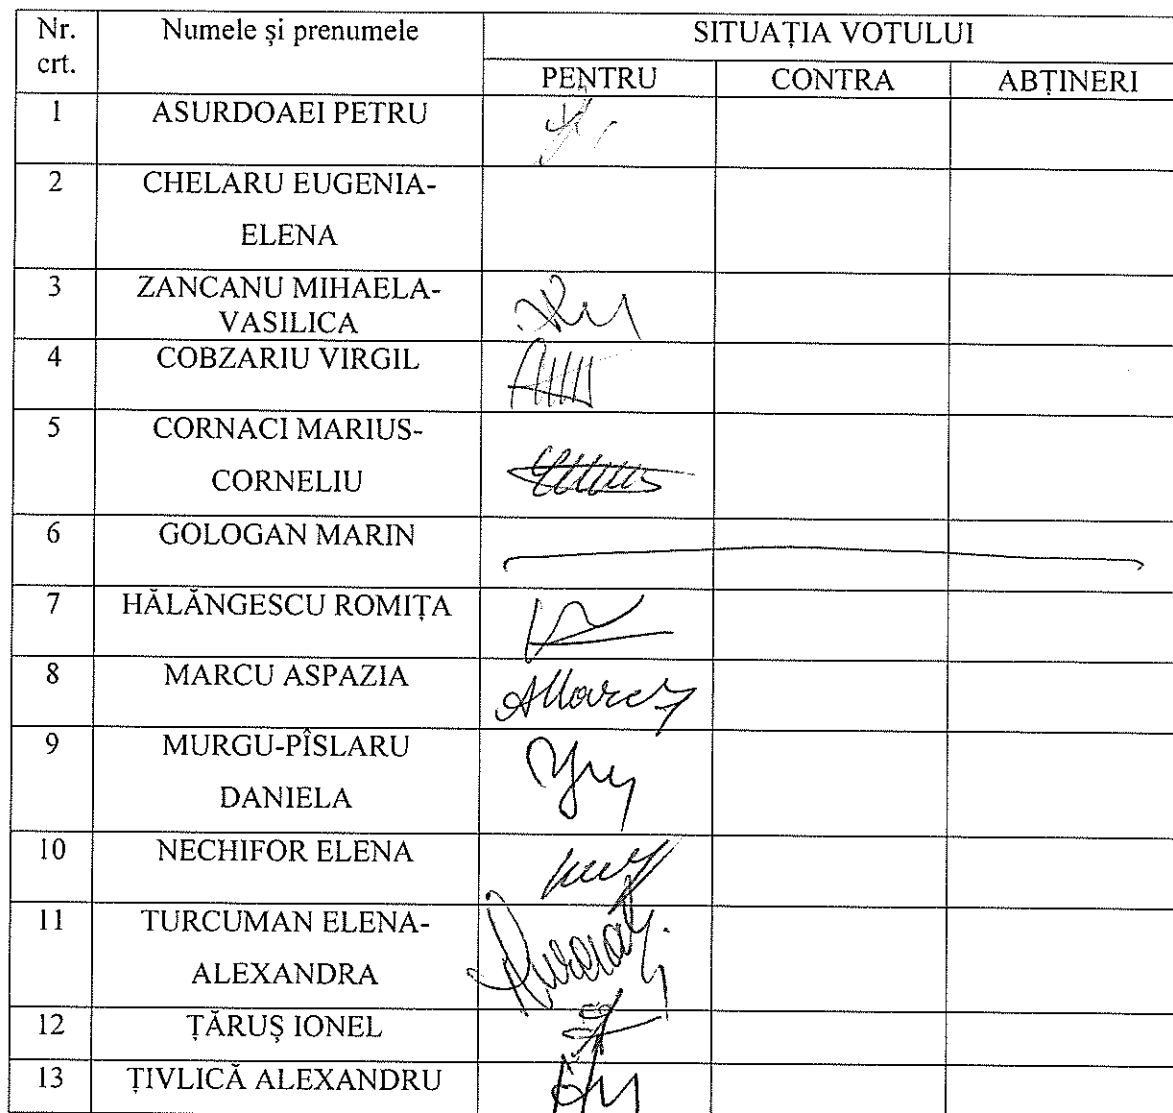 Nr. crt.
Numele şi prenumele
SITUAŢIA VOTULUI
PENTRU
CONTRA
ABŢINERI
1
ASURDOAEI PETRU
2
CHELARU EUGENIA-
ELENA
3
ZANCANU MIHAELA-
VASILICA
4
COBZARIU VIRGIL
5
CORNACI MARIUS-
CORNELIU
6
GOLOGAN MARIN
7
HĂLĂNGESCU ROMIŢA
8
MARCU ASPAZIA
9
MURGU-PÎSLARU
DANIELA
10
NECHIFOR ELENA
11
TURCUMAN ELENA-
ALEXANDRA
12
ŢĂRUŞ IONEL
13
ŢIVLICĂ ALEXANDRU